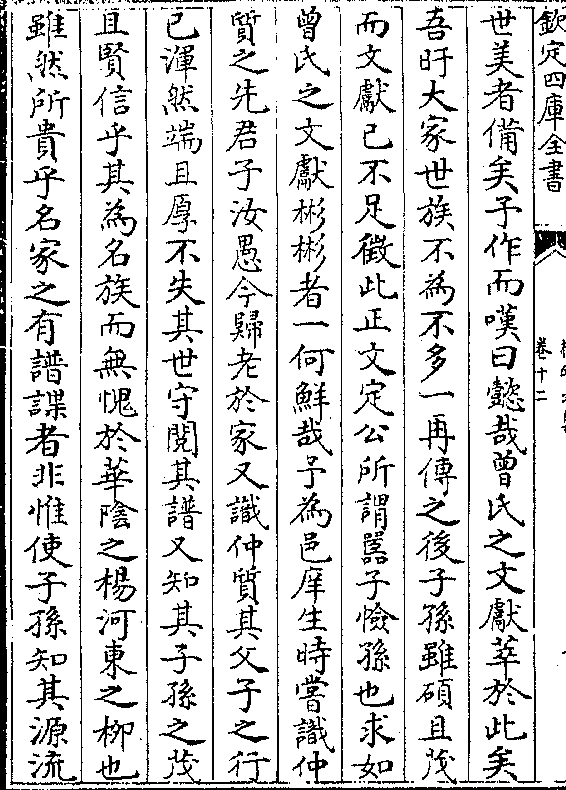 欽定四庫全書
卷十二
世美者備矣予作而嘆曰懿哉曾氏之文獻萃於此矣
吾旴大家世族不為不多一再傳之後子孫雖碩且茂
而文獻已不足徵此正文定公所謂嚚子憸孫也求如
曾氏之文獻彬彬者一何鮮哉予為邑庠生時嘗識仲
質之先君子汝愚今歸老於家又識仲質其父子之行
已渾然端且厚不失其世守閱其譜又知其子孫之茂
且賢信乎其為名族而無愧於華陰之楊河東之栁也
雖然所貴乎名家之有譜諜者非惟使子孫知其源流